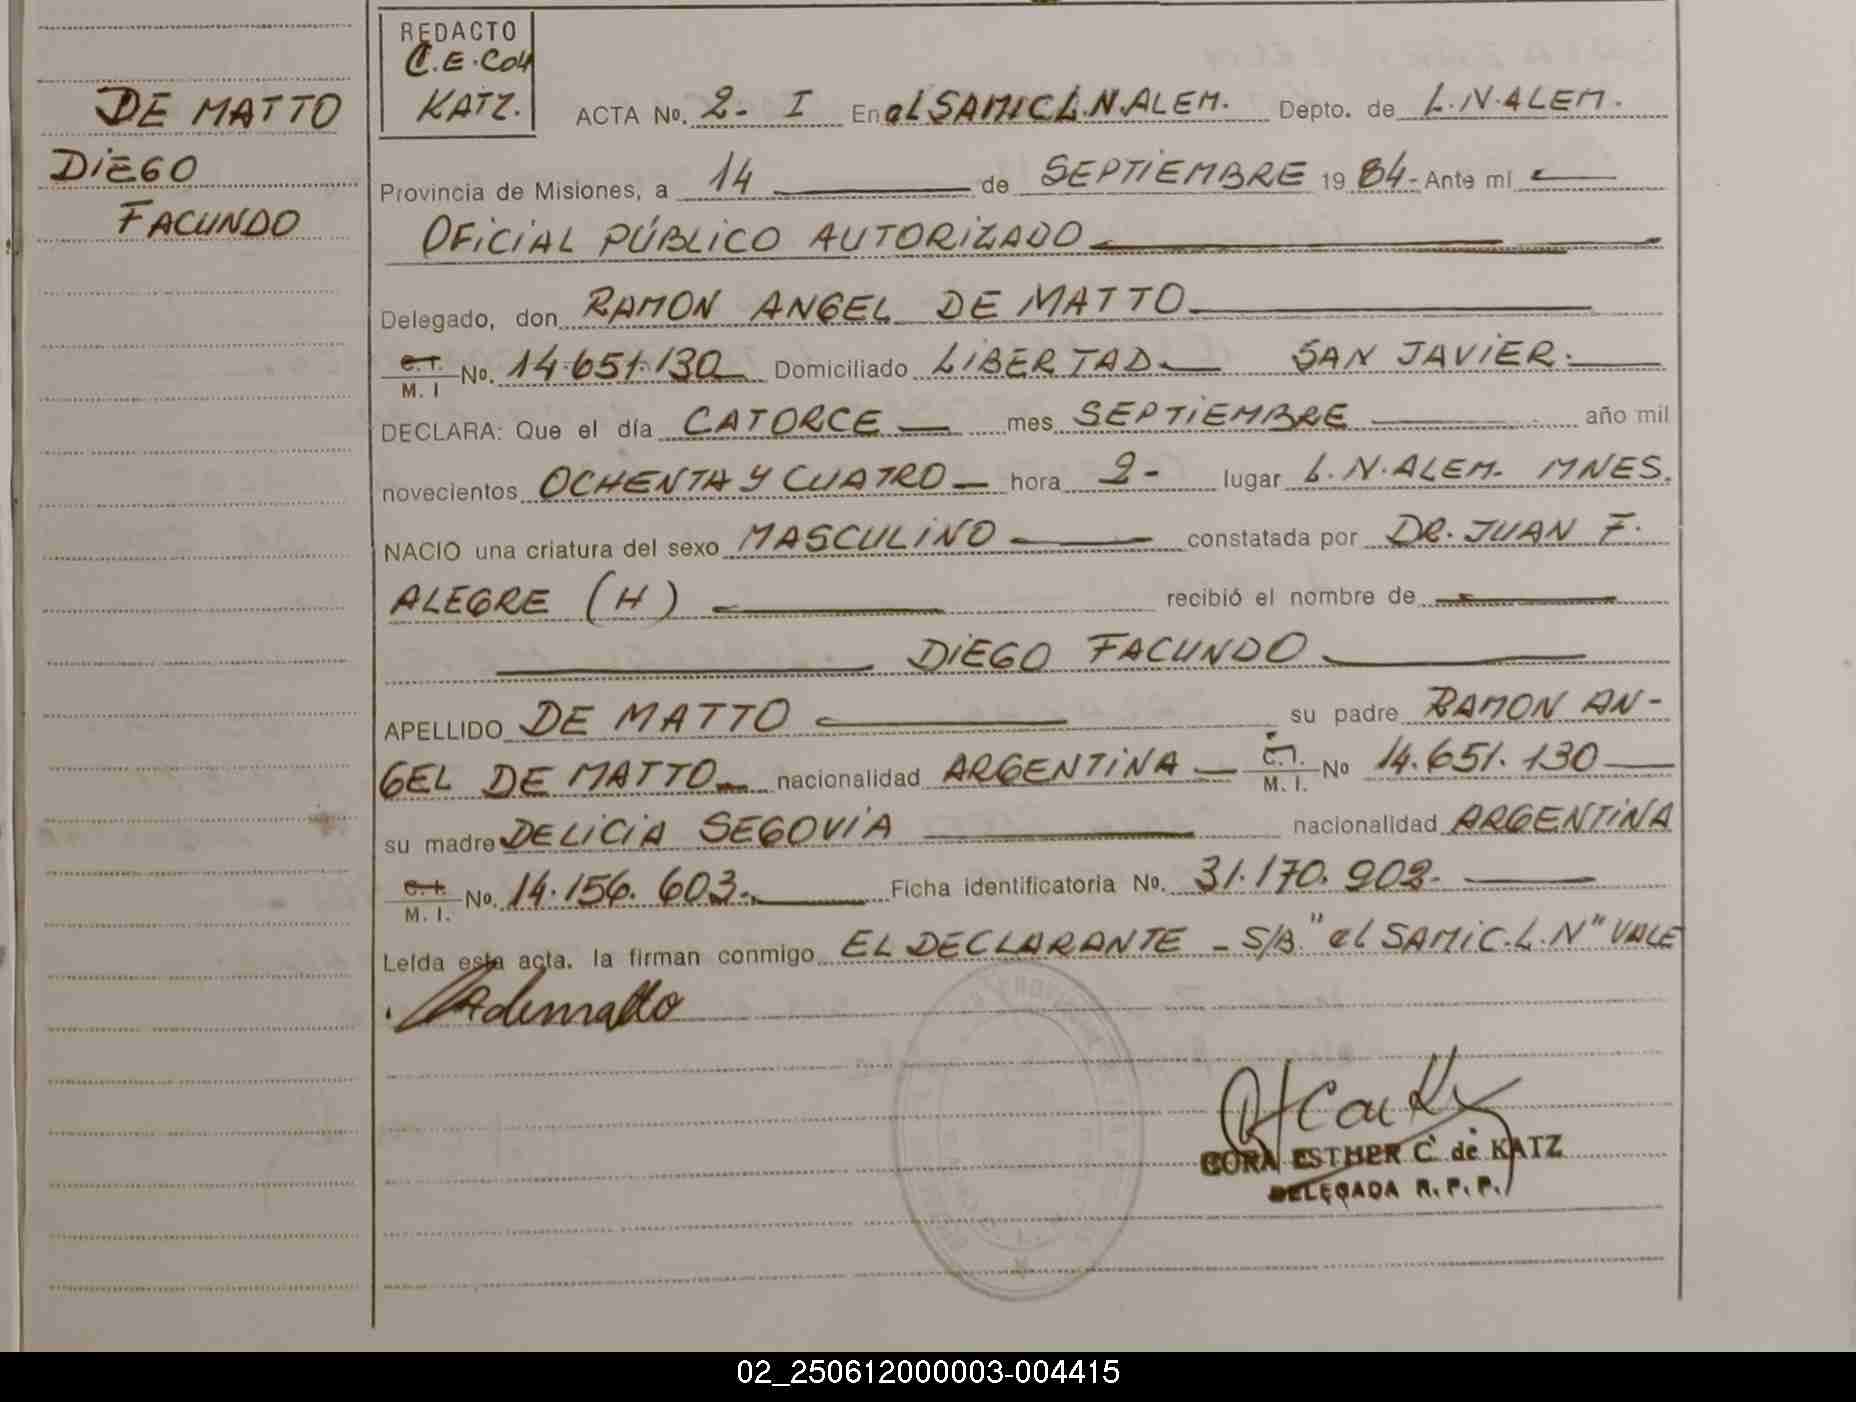 DE MATTO
DIEGO
FACUNDO
REDACTO
C.E.Cou
KATZ.
ACTA No. 2- I En el SAMIC L.N.ALEM. Depto. de L.N.ALEM.
Provincia de Misiones, a 14 de SEPTIEMBRE 1984- Ante mí
OFICIAL PÚBLICO AUTORIZADO
Delegado, don RAMON ANGEL DE MATTO
C.I. M. I No. 14.651.130 Domiciliado LIBERTAD SAN JAVIER.
DECLARA: Que el día CATORCE mes SEPTIEMBRE año mil
novecientos OCHENTA Y CUATRO hora 2- lugar L.N.ALEM. MNES.
NACIO una criatura del sexo MASCULINO constatada por DR. JUAN F.
ALEGRE (H) recibió el nombre de
DIEGO FACUNDO
APELLIDO DE MATTO su padre RAMON AN-
GEL DE MATTO nacionalidad ARGENTINA C.I. M. I. No 14.651.130
su madre DELICIA SEGOVIA nacionalidad ARGENTINA
C.I. M. I. No. 14.156.603. Ficha identificatoria No. 31.170.902-
Leída esta acta, la firman conmigo EL DECLARANTE - S/B."el SAMIC.L.N" VALE
Adematto
CORA ESTHER C. de KATZ
DELEGADA R.P.P.
02_250612000003-004415